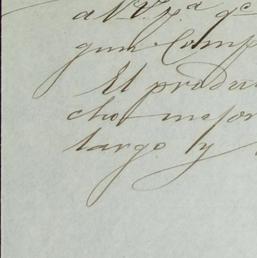 a V. V. p.ª q.ᵉ
gun Comp
El produ
cho mejor
largo y